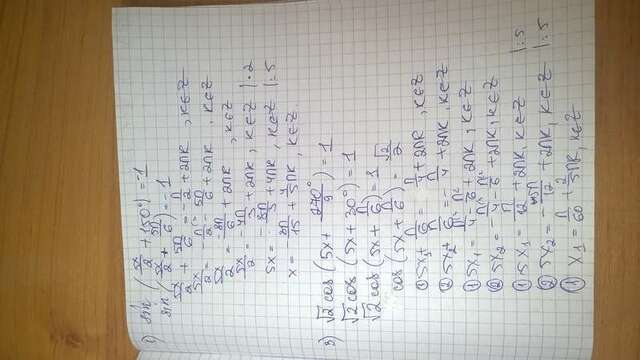 1) sin (5x/2 + 150°) = -1
sin (5x/2 + 5π/6) = -1
5x/2 + 5π/6 = -π/2 + 2πk, k∈Z
5x/2 = -π/2 - 5π/6 + 2πk, k∈Z
5x/2 = -8π/6 + 2πk, k∈Z
5x/2 = -4π/3 + 2πk, k∈Z |·2
5x = -8π/3 + 4πk, k∈Z |:5
x = -8π/15 + 4/5πk, k∈Z
3) √2 cos (5x + 270°/9) = 1
√2 cos (5x + 30°) = 1
√2 cos (5x + π/6) = 1
cos (5x + π/6) = √2/2
① 5x₁ + π/6 = π/4 + 2πk, k∈Z
② 5x₂ + π/6 = -π/4 + 2πk, k∈Z
① 5x₁ = π/4 - π/6 + 2πk, k∈Z
② 5x₂ = -π/4 - π/6 + 2πk, k∈Z
① 5x₁ = π/12 + 2πk, k∈Z |:5
② 5x₂ = -5π/12 + 2πk, k∈Z |:5
① x₁ = π/60 + 2/5πk, k∈Z